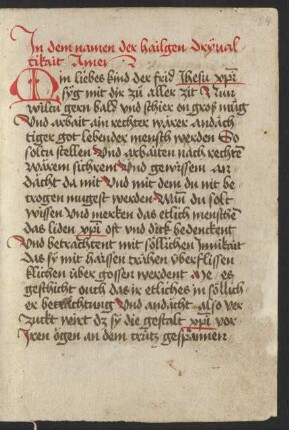 In dem namen der hailgen Dryual
tikait Amen
Min liebes kind der frid Jhesu xpi
syg mit dir zů aller zit Nun
wiltu gern bald vnd schier on groß müg
Vnd arbait ain rechter warer andäch
tiger got lebender mensch werden So
soltu stellen Vnd arbaiten nach rechtē
warem sichrem Vnd gewissem an
dächt da mit Vnd mit dem du nit be
trogen mugest werden Wañ du solt
wissen Vnd mercken das etlich menschē
das liden xpi oft vnd dick bedenckent
Vnd betrachtent mit söllichen Jnnikait
das sy mit haissen trähen überflissen
klichen über gossen werdent Me es
geschicht ouch das ir etliches in söllich
er betrachtung Vnd andächt also ver
zuckt wirt dz sy die gestalt xpi vor
Jren ögen an dem crütz gespannen